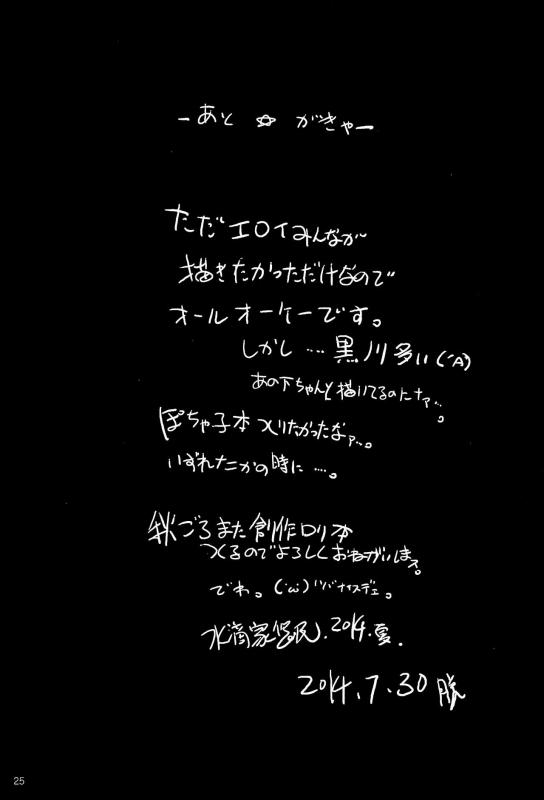 ーあと☆がきゃー
ただエロイみんなが
描きたかっただけなので
オールオーケーです。
しかし…黒川多い(´A`)
あの下ちゃんと描いてるのにナァ…。
ぽちゃ子本つくりたかったなァ…。
いずれたこかの時に…。
秋ごろまた創作ロリ本
つくるのでよろしくおねがいしまする。
でわ。(´ω`)
水滴家 2014.夏.
2014.7.30
25